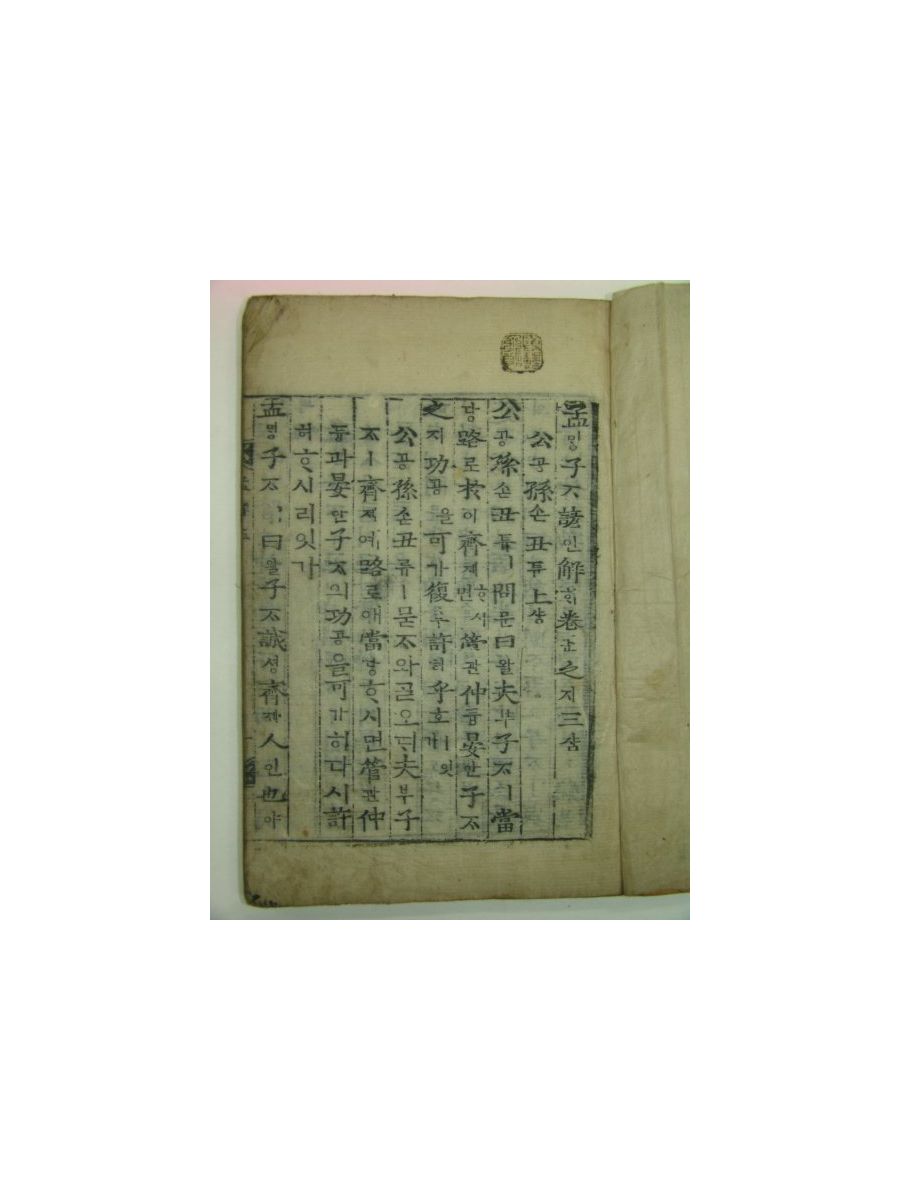 孟밍子ᄌᆞ諺언解ᄒᆡ卷권之지三삼
公공孫손丑튜上샹
公공孫손丑튜ㅣ問문曰왈夫부子ᄌᆞㅣ當
당路로於어齊제ᄒᆞ시면管관仲듕晏안子ᄌᆞ
之지功공을可가復부許허乎호ㅣ잇가
公공孫손丑튜ㅣ묻ᄌᆞ와ᄀᆞᆯ오ᄃᆡ夫부子
ᄌᆞㅣ齊졔예路로애當당ᄒᆞ시면管관仲
듕과晏안子ᄌᆞ의功공을可가히다시許
허ᄒᆞ시리잇가
孟밍子ᄌᆞㅣ曰왈子ᄌᆞ誠셩齊제人인也야